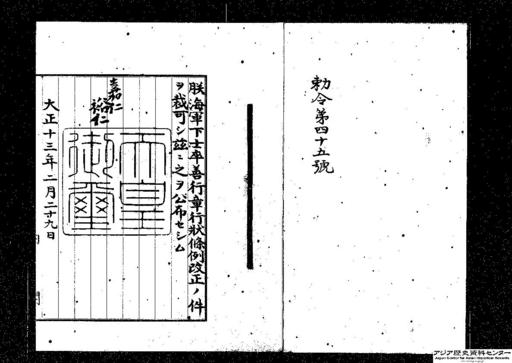 勅令第四十五號
朕海軍下士卒善行章行狀條例改正ノ件
ヲ裁可シ茲ニ之ヲ公布セシム
嘉仁
裕仁
天皇
御璽
大正十三年二月二十九日
アジア歴史資料センター
Japan Center for Asian Historical Records